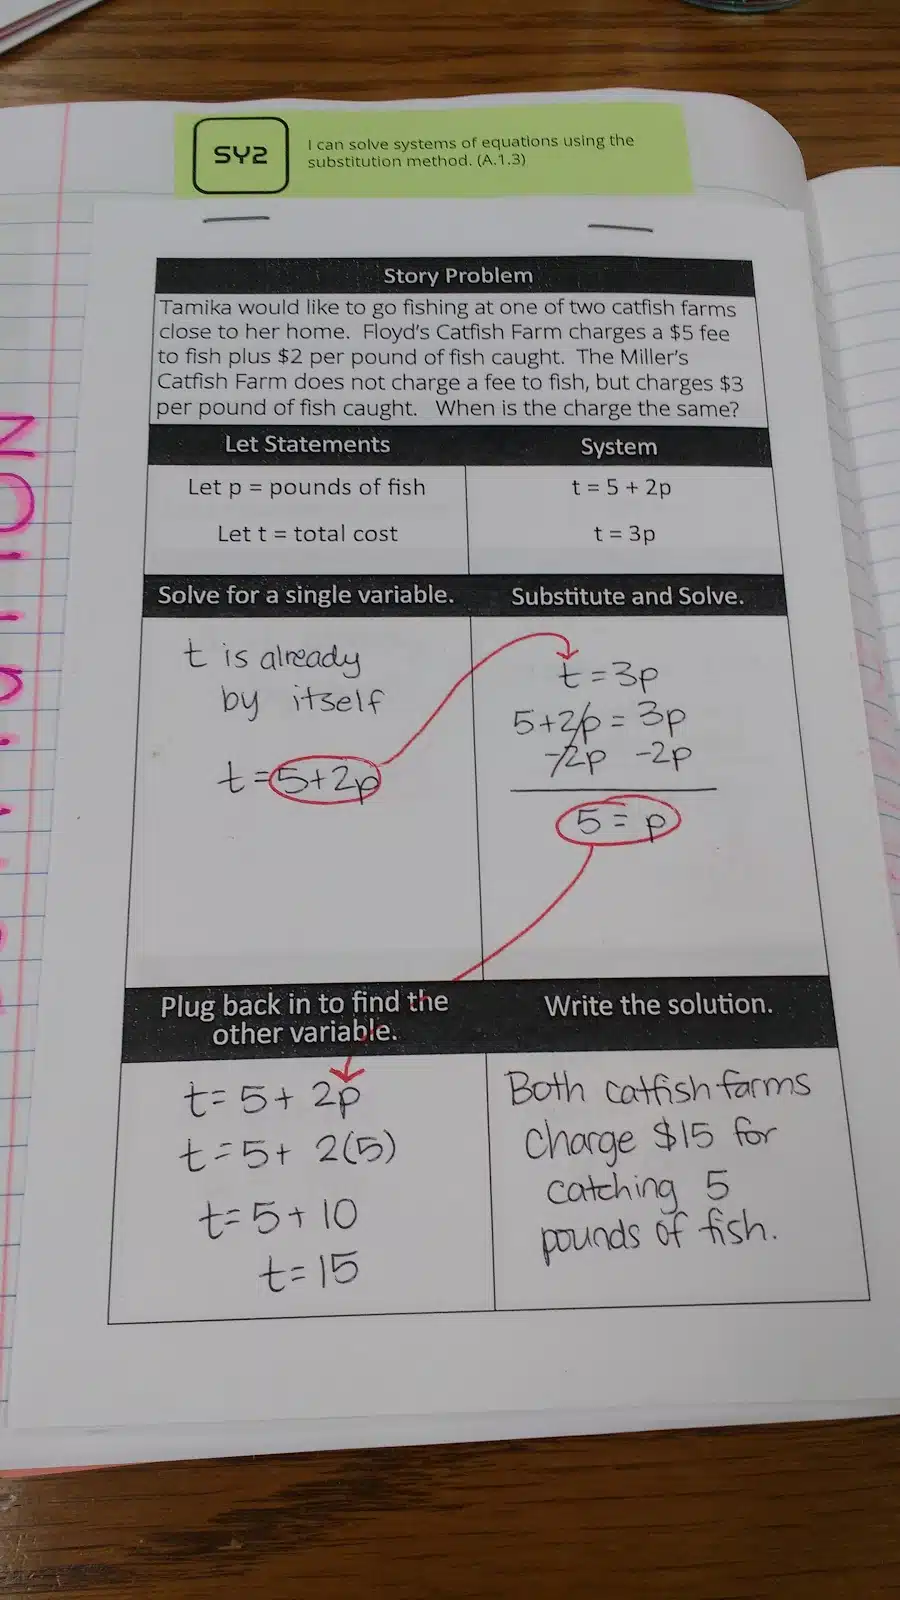 SY2
I can solve systems of equations using the
substitution method. (A.1.3)
Story Problem
Tamika would like to go fishing at one of two catfish farms
close to her home. Floyd's Catfish Farm charges a $5 fee
to fish plus $2 per pound of fish caught. The Miller's
Catfish Farm does not charge a fee to fish, but charges $3
per pound of fish caught. When is the charge the same?
Let Statements
Let p = pounds of fish
Let t = total cost
System
t = 5 + 2p
t = 3p
Solve for a single variable.
t is already
by itself
t = 5+2p
Substitute and Solve.
t = 3p
5+2p = 3p
-2p -2p
5 = p
Plug back in to find the
other variable.
t = 5 + 2p
t = 5 + 2(5)
t = 5 + 10
t = 15
Write the solution.
Both catfish farms
charge $15 for
catching 5
pounds of fish.